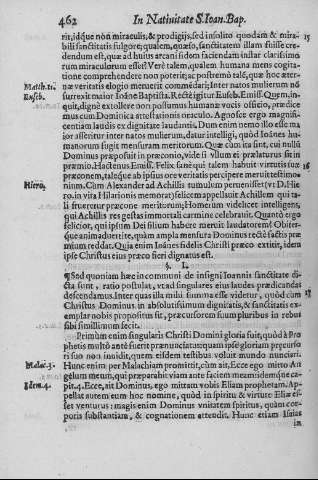 462 In Nativitate S. Ioan. Bap.
rit, idque non miraculis, & prodigijs, sed insolito quodam & mira-
bili sanctitatis fulgore; qualem, quæso, sanctitatem illam fuisse cre-
dendum est, quæ ad huius arcani fidem faciendam instar clarissimo-
rum miraculorum esset? Verè talem, qualem humana mens cogita-
tione comprehendere non poterit; ac postremò talē, quæ hoc æter-
næ veritatis elogio meruerit commēdari; Inter natos mulierum nō
surrexit maior Ioāne Baptista. Rectè igitur Euseb. Emiss. Quem, in-
quit, dignè extollere non possumus humanæ vocis officio, prædice
mus cum Dominica attestationis oraculo. Agnosce ergo magnifi-
centiam laudis ex dignitate laudantis. Dum enim nemo illo esse ma
ior asseritur inter natos mulierum, datur intelligi, quòd Ioānes hu-
manorum fugit mensuram meritorum. Quæ cùm ita sint, cui nullū
Dominus præposuit in præconio, vide si vllum ei prælaturus sit in
præmio. Hactenus Emiss. Felix sanè qui talem habuit virtutis suæ
præconem, talēque ab ipsius ore veritatis percipere meruit testimo-
nium. Cùm Alexander ad Achillis tumulum peruenisset (vt D. Hie
ro. in vita Hilarionis memorat) felicem appellauit Achillem, quòd ta-
li frueretur præcone meritorum; Homerum videlicet intelligens,
qui Achillis res gestas immortali carmine celebrauit. Quantò ergo
felicior, qui ipsum Dei filium habere meruit laudatorem! Obiter-
que animaduerte, quàm ampla mensura Dominus rectè factis præ
mium reddat. Quia enim Ioānes fidelis Christi præco extitit, idem
ipse Christus eius præco fieri dignatus est.
§. I.
¶Sed quoniam hæc in communi de insigni Ioannis sanctitate di-
cta sunt, ratio postulat, vt ad singulares eius laudes prædicandas
descendamus. Inter quas illa mihi summa esse videtur, quòd cùm
Christus Dominus in absolutissimum dignitatis, & sanctitatis ex-
emplar nobis propositus sit, præcursorem suum pluribus in rebus
sibi simillimum fecit.
Primùm enim singularis Christi Domini gloria fuit, quòd à Pro
phetis multò antè fuerit prænunciatus: quam ipse gloriam præcurso
ri suo non inuidit, quem eisdem testibus voluit mundo nunciari.
Hunc enim per Malachiam promittit, cùm ait, Ecce ego mitto An
gelum meum, qui præparabit viam ante faciem meam. Idemque ca-
pit. 4. Ecce, ait Dominus, ego mittam vobis Eliam prophetam. Ap-
pellat autem eum hoc nomine, quòd in spiritu & virtute Eliæ es-
set venturus: magis enim Dominus vnitatem spiritus, quàm cor-
poris substantiam, & cognationem attendit. Hunc etiam Isaias
in
Matth. 11.
Euseb.
Hiero.
Malac. 3.
Idem. 4.
15
16